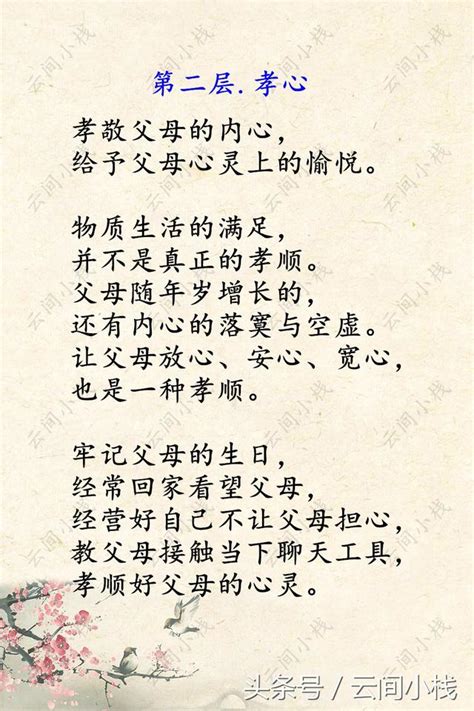 第二层.孝心
孝敬父母的内心，
给予父母心灵上的愉悦。
物质生活的满足，
并不是真正的孝顺。
父母随年岁增长的，
还有内心的落寞与空虚。
让父母放心、安心、宽心，
也是一种孝顺。
牢记父母的生日，
经常回家看望父母，
经营好自己不让父母担心，
教父母接触当下聊天工具，
孝顺好父母的心灵。
头条号/云间小栈
云间小栈